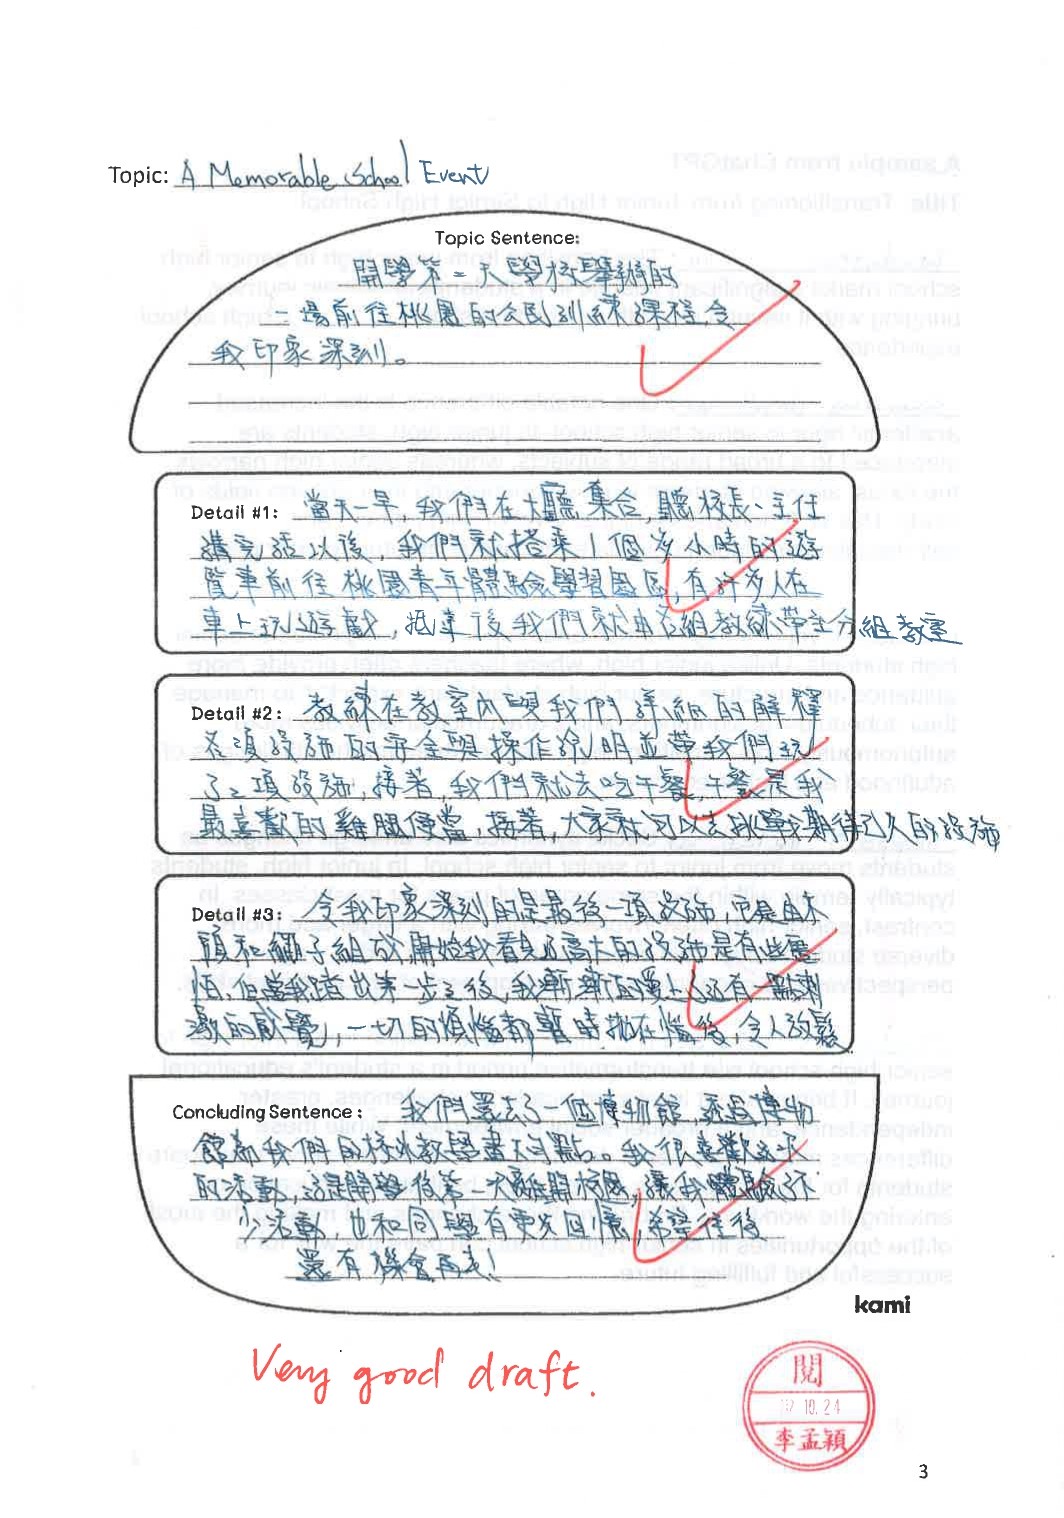 Topic: A Memorable School Event
Topic Sentence:
開學第二天學校舉辦的
一場前往桃園的公民訓練課程,令
我印象深刻。
Detail #1: 當天一早,我們在大廳集合,聽校長、主任
講完話以後,我們就搭乘1個多小時的遊
覽車前往桃園青年體驗學習園區,有許多人在
車上玩遊戲,抵達後我們就由各組教練帶至分組教室
Detail #2: 教練在教室內與我們詳細的解釋
各項設施的安全與操作說明並帶我們玩
了二項設施,接著,我們就去吃午餐,午餐是我
最喜歡的雞腿便當,接著,大家就可以去挑戰期待已久的設施
Detail #3: 令我印象深刻的是最後一項設施,它是由木
頭和繩子組成,開始我看到這高大的設施是有些害
怕,但當我踏出第一步之後,我漸漸
激的感覺,一切的煩惱都暫時拋在腦後,令人放鬆
Concluding Sentence: 我們還去了一個博物館,透過博物
館為我們的校外教學畫下句點。我很喜歡這次
的活動,這是開學後第一次離開校園,讓我體驗這
少活動,也和同學有更多回憶,希望往後
還有機會再去!
kami
Very good draft.
閱
10.24
李孟穎
3